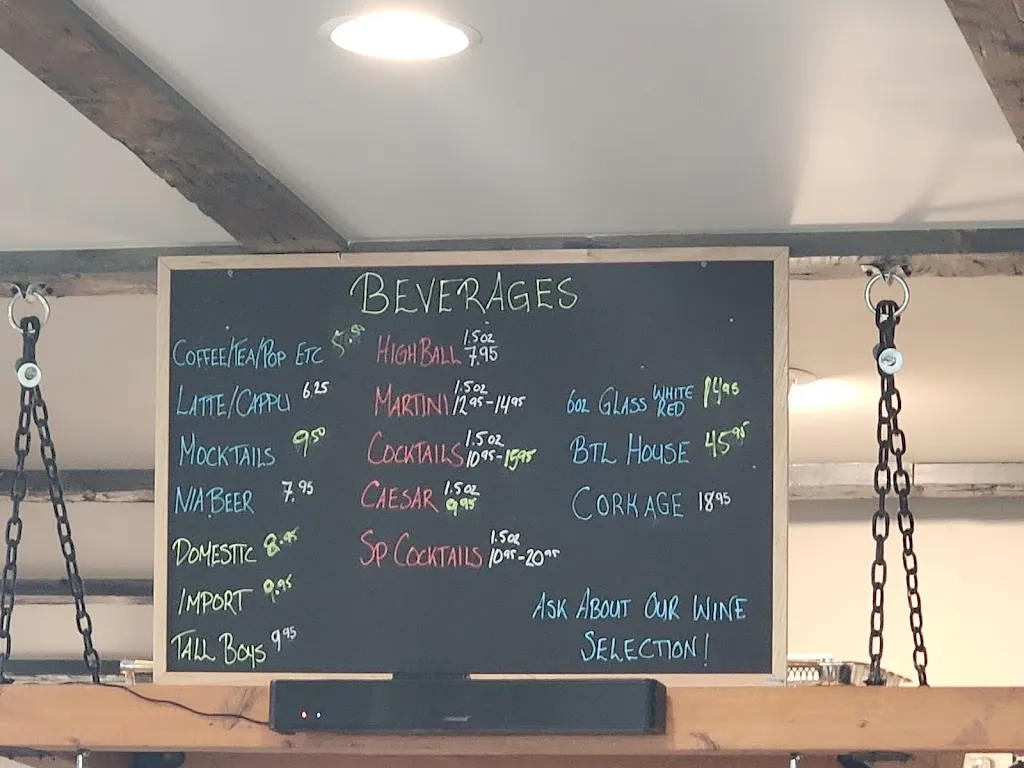 BEVERAGES
COFFEE/TEA/POP ETC
LATTE/CAPPU 6.25
MOCKTAILS 9.50
N/A BEER 7.95
DOMESTIC 8.95
IMPORT 9.95
TALL BOYS 9.95
HIGHBALL 1.5OZ 7.95
MARTINI 1.5OZ 12.95-14.95
COCKTAILS 1.5OZ 10.95-15.95
CAESAR 1.5OZ 9.95
SP COCKTAILS 1.5OZ 10.95-20.95
6OZ GLASS WHITE RED 14.95
BTL HOUSE 45.95
CORKAGE 18.95
ASK ABOUT OUR WINE
SELECTION!